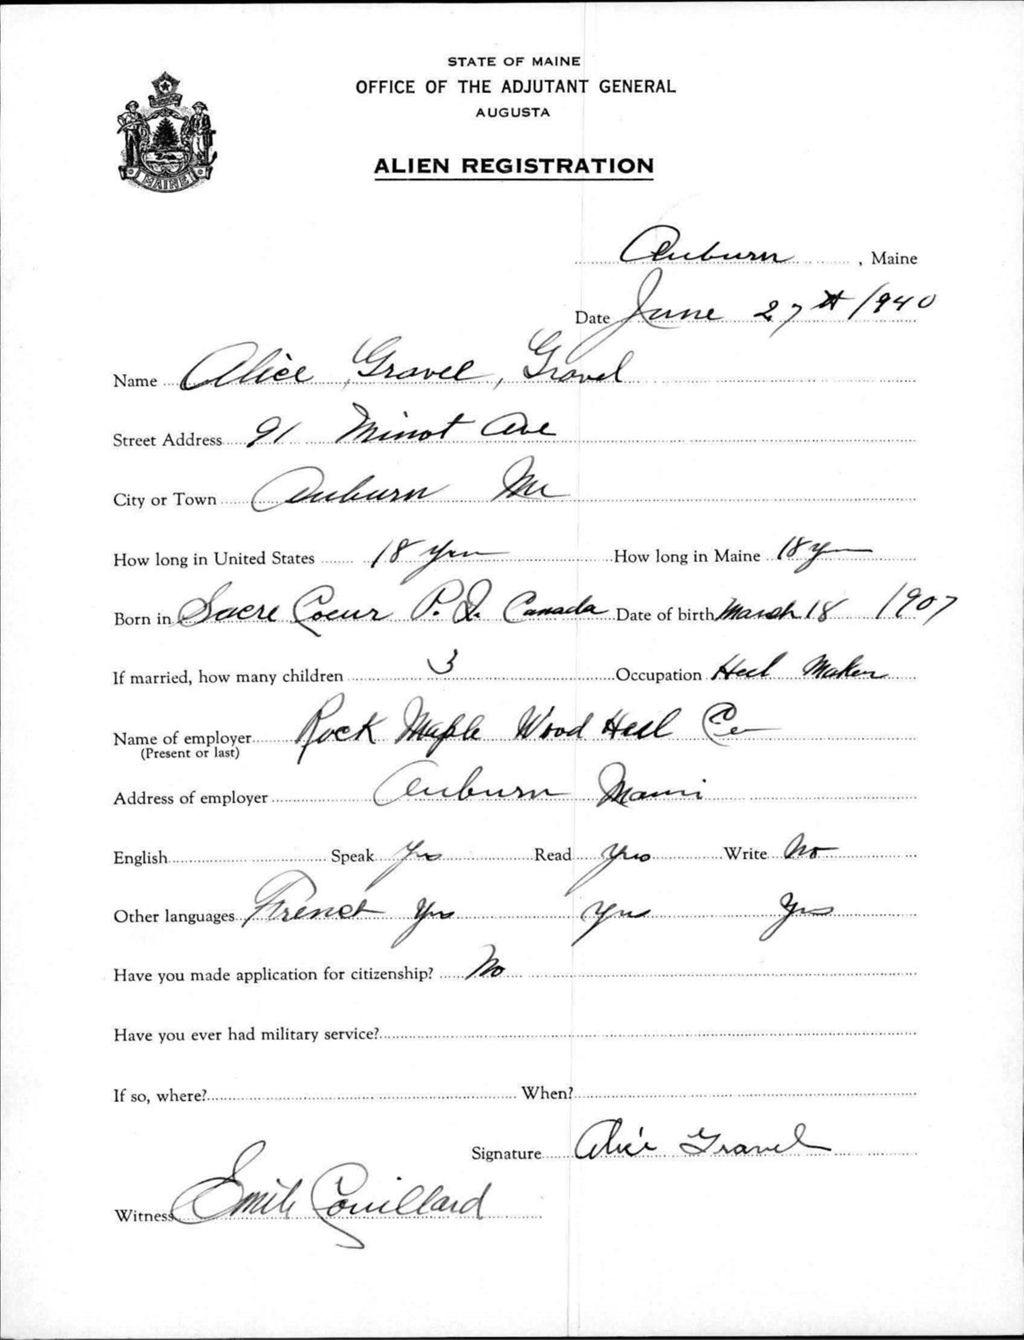 STATE OF MAINE
OFFICE OF THE ADJUTANT GENERAL
AUGUSTA
ALIEN REGISTRATION
MAINE
Auburn, Maine
Date June 27th 1940
Name Alice Gravel, Gravel
Street Address 91 Minot Ave
City or Town Auburn Me
How long in United States 18 yrs How long in Maine 18 y
Born in Sacre Coeur P. Q. Canada Date of birth March 18 1907
If married, how many children 3 Occupation Heel Maker
Name of employer Rock Maple Wood Heel Co
(Present or last)
Address of employer Auburn Maine
English Speak Yes Read Yes Write No
Other languages French Yes Yes Yes
Have you made application for citizenship? No
Have you ever had military service?
If so, where? When?
Signature Alice Gravel
Witness Emile Couillard